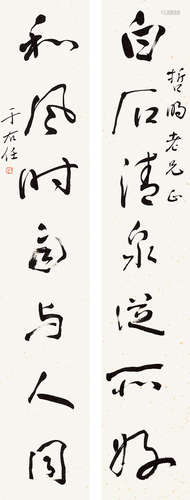 白石清泉從所好
哲明老兄正
和風時雨與人同
于右任